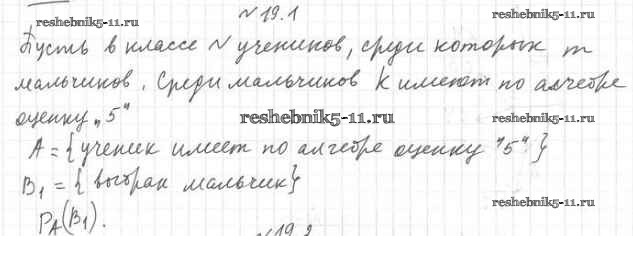 № 19.1
reshebnik5-11.ru
Пусть в классе N учеников, среди которых m
мальчиков. Среди мальчиков K имеют по алгебре
оценку „5“
reshebnik5-11.ru
A = { ученик имеет по алгебре оценку "5". }
B₁ = { выбран мальчик }
reshebnik5-11.ru
P_A(B₁).
№19.2